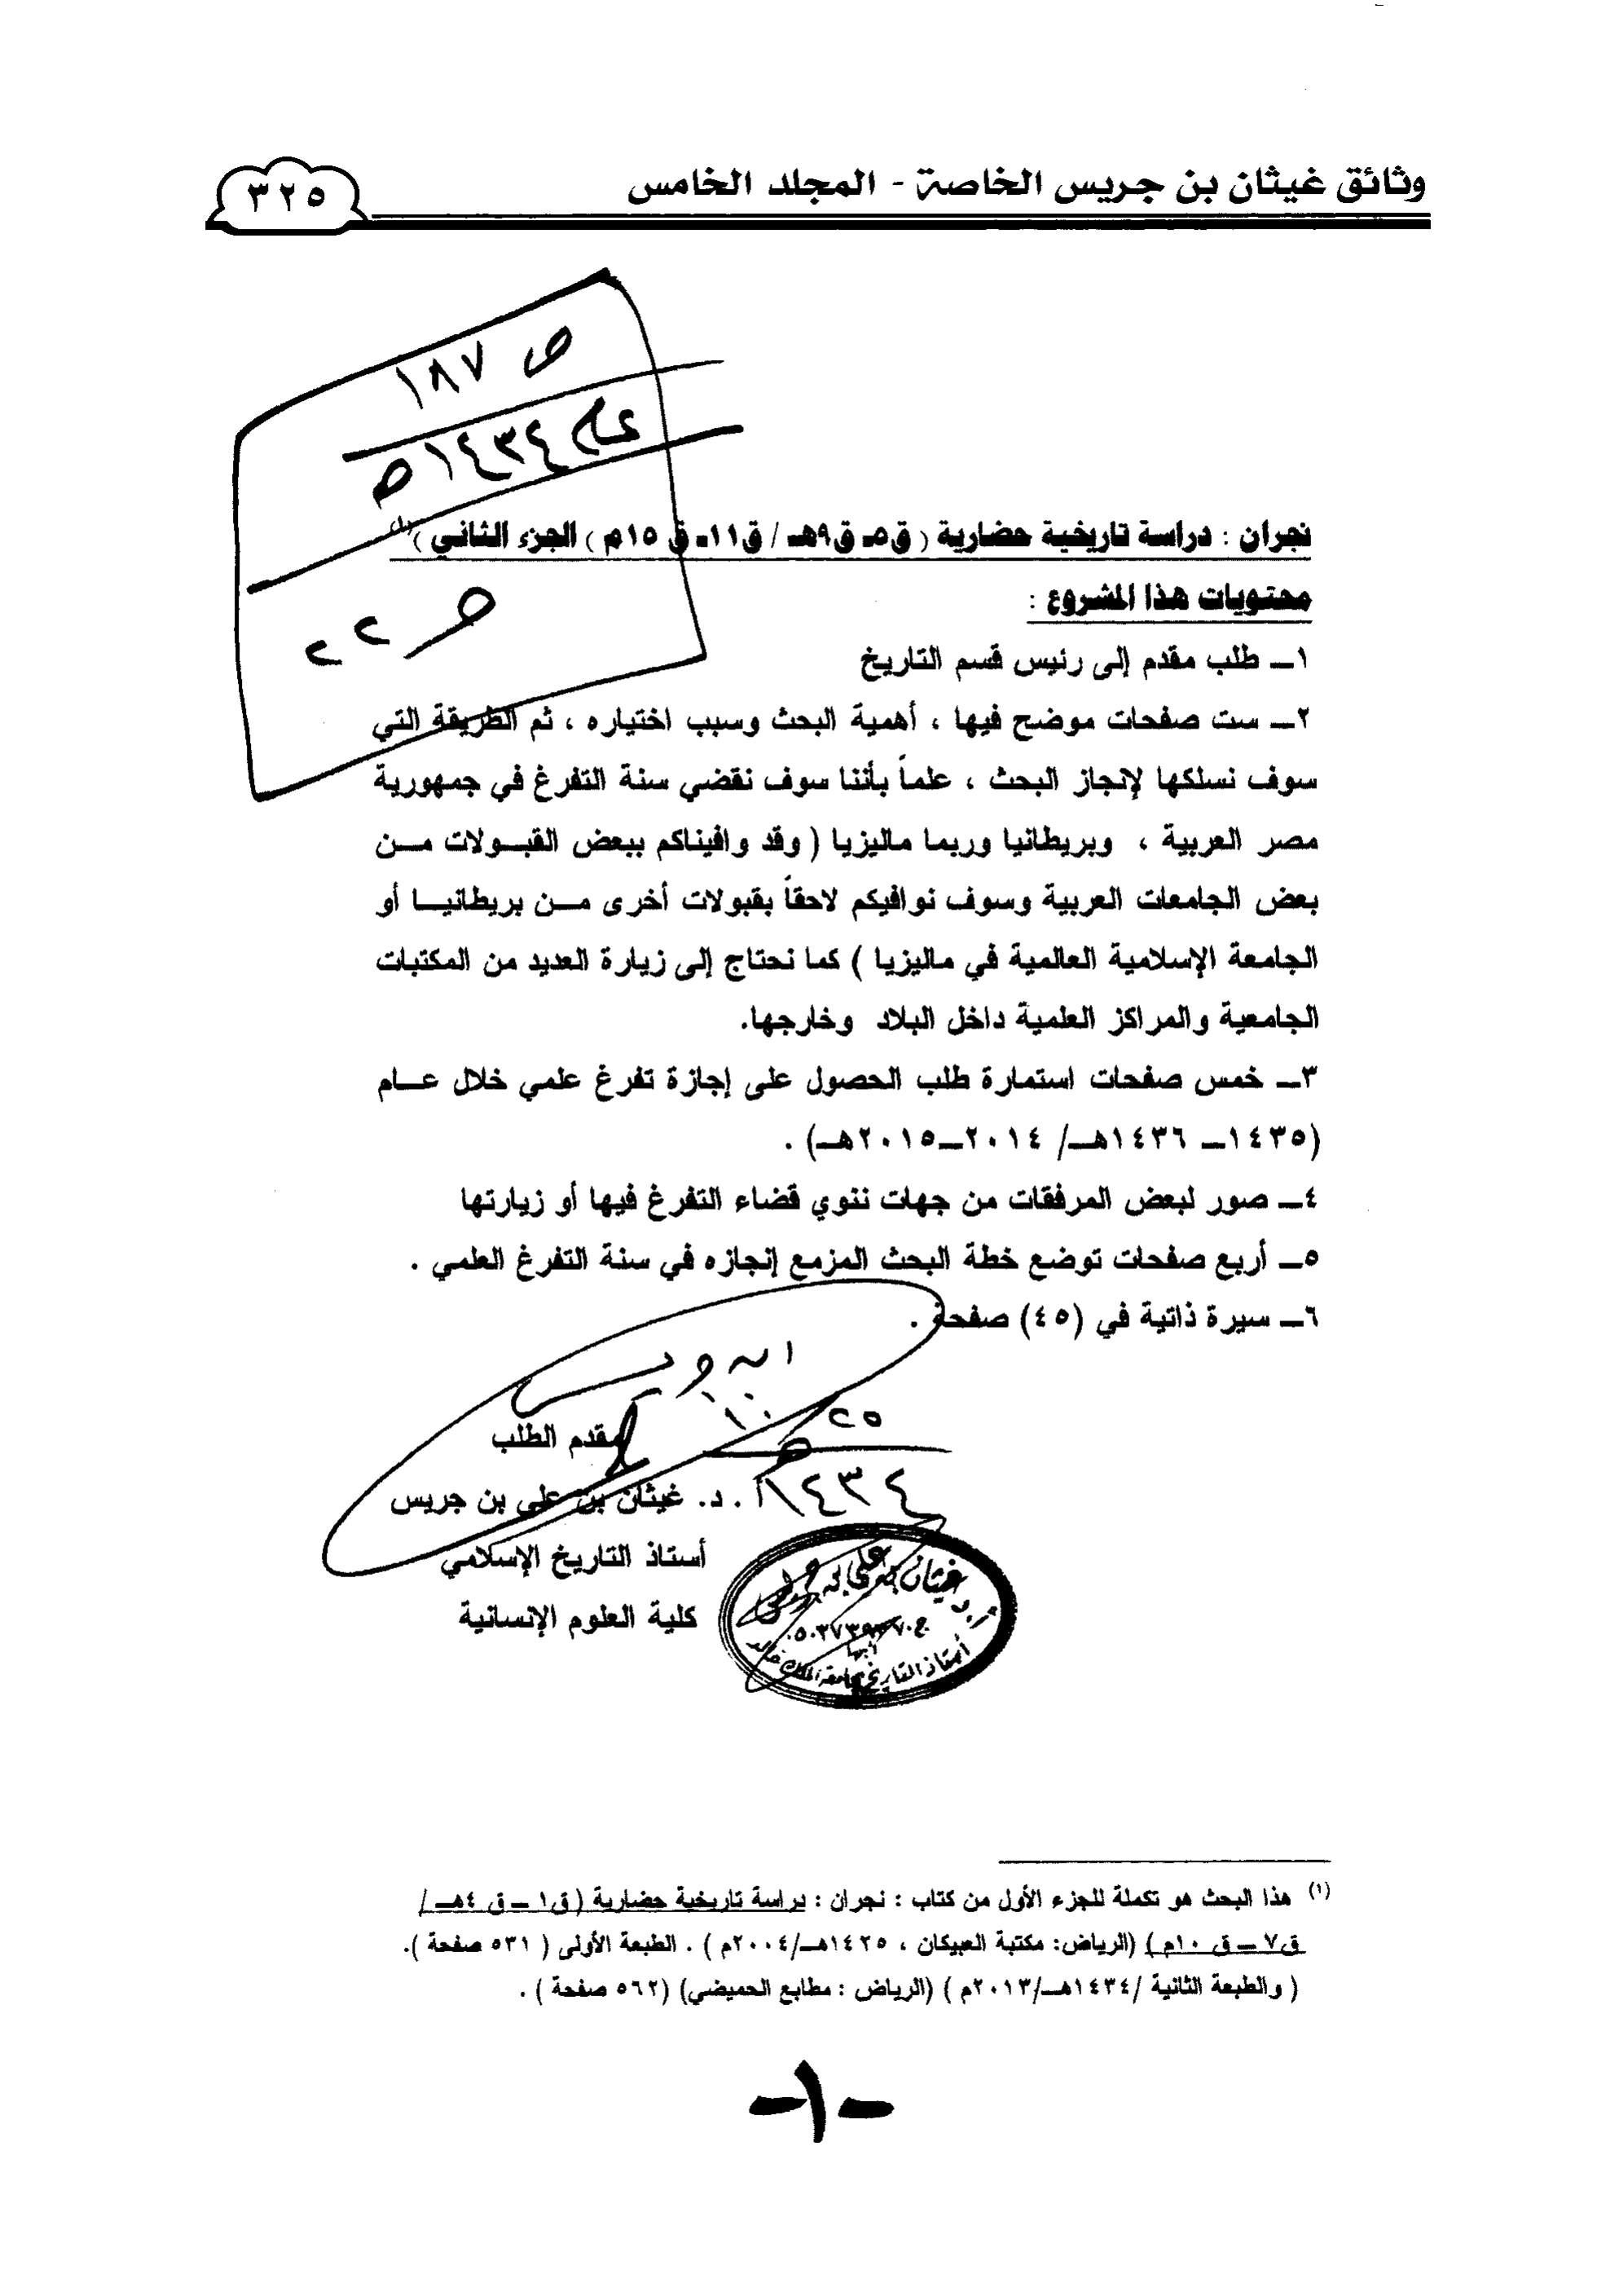 وثائق غيثان بن جريس الخاصة - المجلد الخامس
٣٢٥
ص ١٨٧
عام ١٤٣٤هـ
نجران : دراسة تاريخية حضارية ( ق٥ـ ق٩هـ / ق١١ـ ق ١٥م ) الجزء الثاني )(١)
محتويات هذا المشروع :
١ـ طلب مقدم إلى رئيس قسم التاريخ
٢ـ ست صفحات موضح فيها ، أهمية البحث وسبب اختياره ، ثم الطريقة التي
سوف نسلكها لإنجاز البحث ، علماً بأننا سوف نقضي سنة التفرغ في جمهورية
مصر العربية ، وبريطانيا وربما ماليزيا ( وقد وافيناكم ببعض القبـولات مـن
بعض الجامعات العربية وسوف نوافيكم لاحقاً بقبولات أخرى مـن بريطانيـا أو
الجامعة الإسلامية العالمية في ماليزيا ) كما نحتاج إلى زيارة العديد من المكتبات
الجامعية والمراكز العلمية داخل البلاد وخارجها.
٣ـ خمس صفحات استمارة طلب الحصول على إجازة تفرغ علمي خلال عـام
(١٤٣٥ـ ١٤٣٦هـ/ ٢٠١٤ـ٢٠١٥هـ) .
٤ـ صور لبعض المرفقات من جهات ننوي قضاء التفرغ فيها أو زيارتها
٥ـ أربع صفحات توضع خطة البحث المزمع إنجازه في سنة التفرغ العلمي .
٦ـ سيرة ذاتية في (٤٥) صفحة .
مقدم الطلب
١٤٣٤
أ . د. غيثان بن علي بن جريس
أستاذ التاريخ الإسلامي
كلية العلوم الإنسانية
أ.د غيثان بن علي بن جريس
أبها
أستاذ التاريخ بجامعة الملك خالد
(١) هذا البحث هو تكملة للجزء الأول من كتاب : نجران : دراسة تاريخية حضارية ( ق١ ـ ق ٤هـ /
ق٧ ـ ق ١٠م ) (الرياض: مكتبة العبيكان ، ١٤٢٥هـ/٢٠٠٤م ) . الطبعة الأولى ( ٥٣١ صفحة ).
( والطبعة الثانية /١٤٣٤هـ/٢٠١٣م ) (الرياض : مطابع الحميضي) (٥٦٢ صفحة ) .
-١-